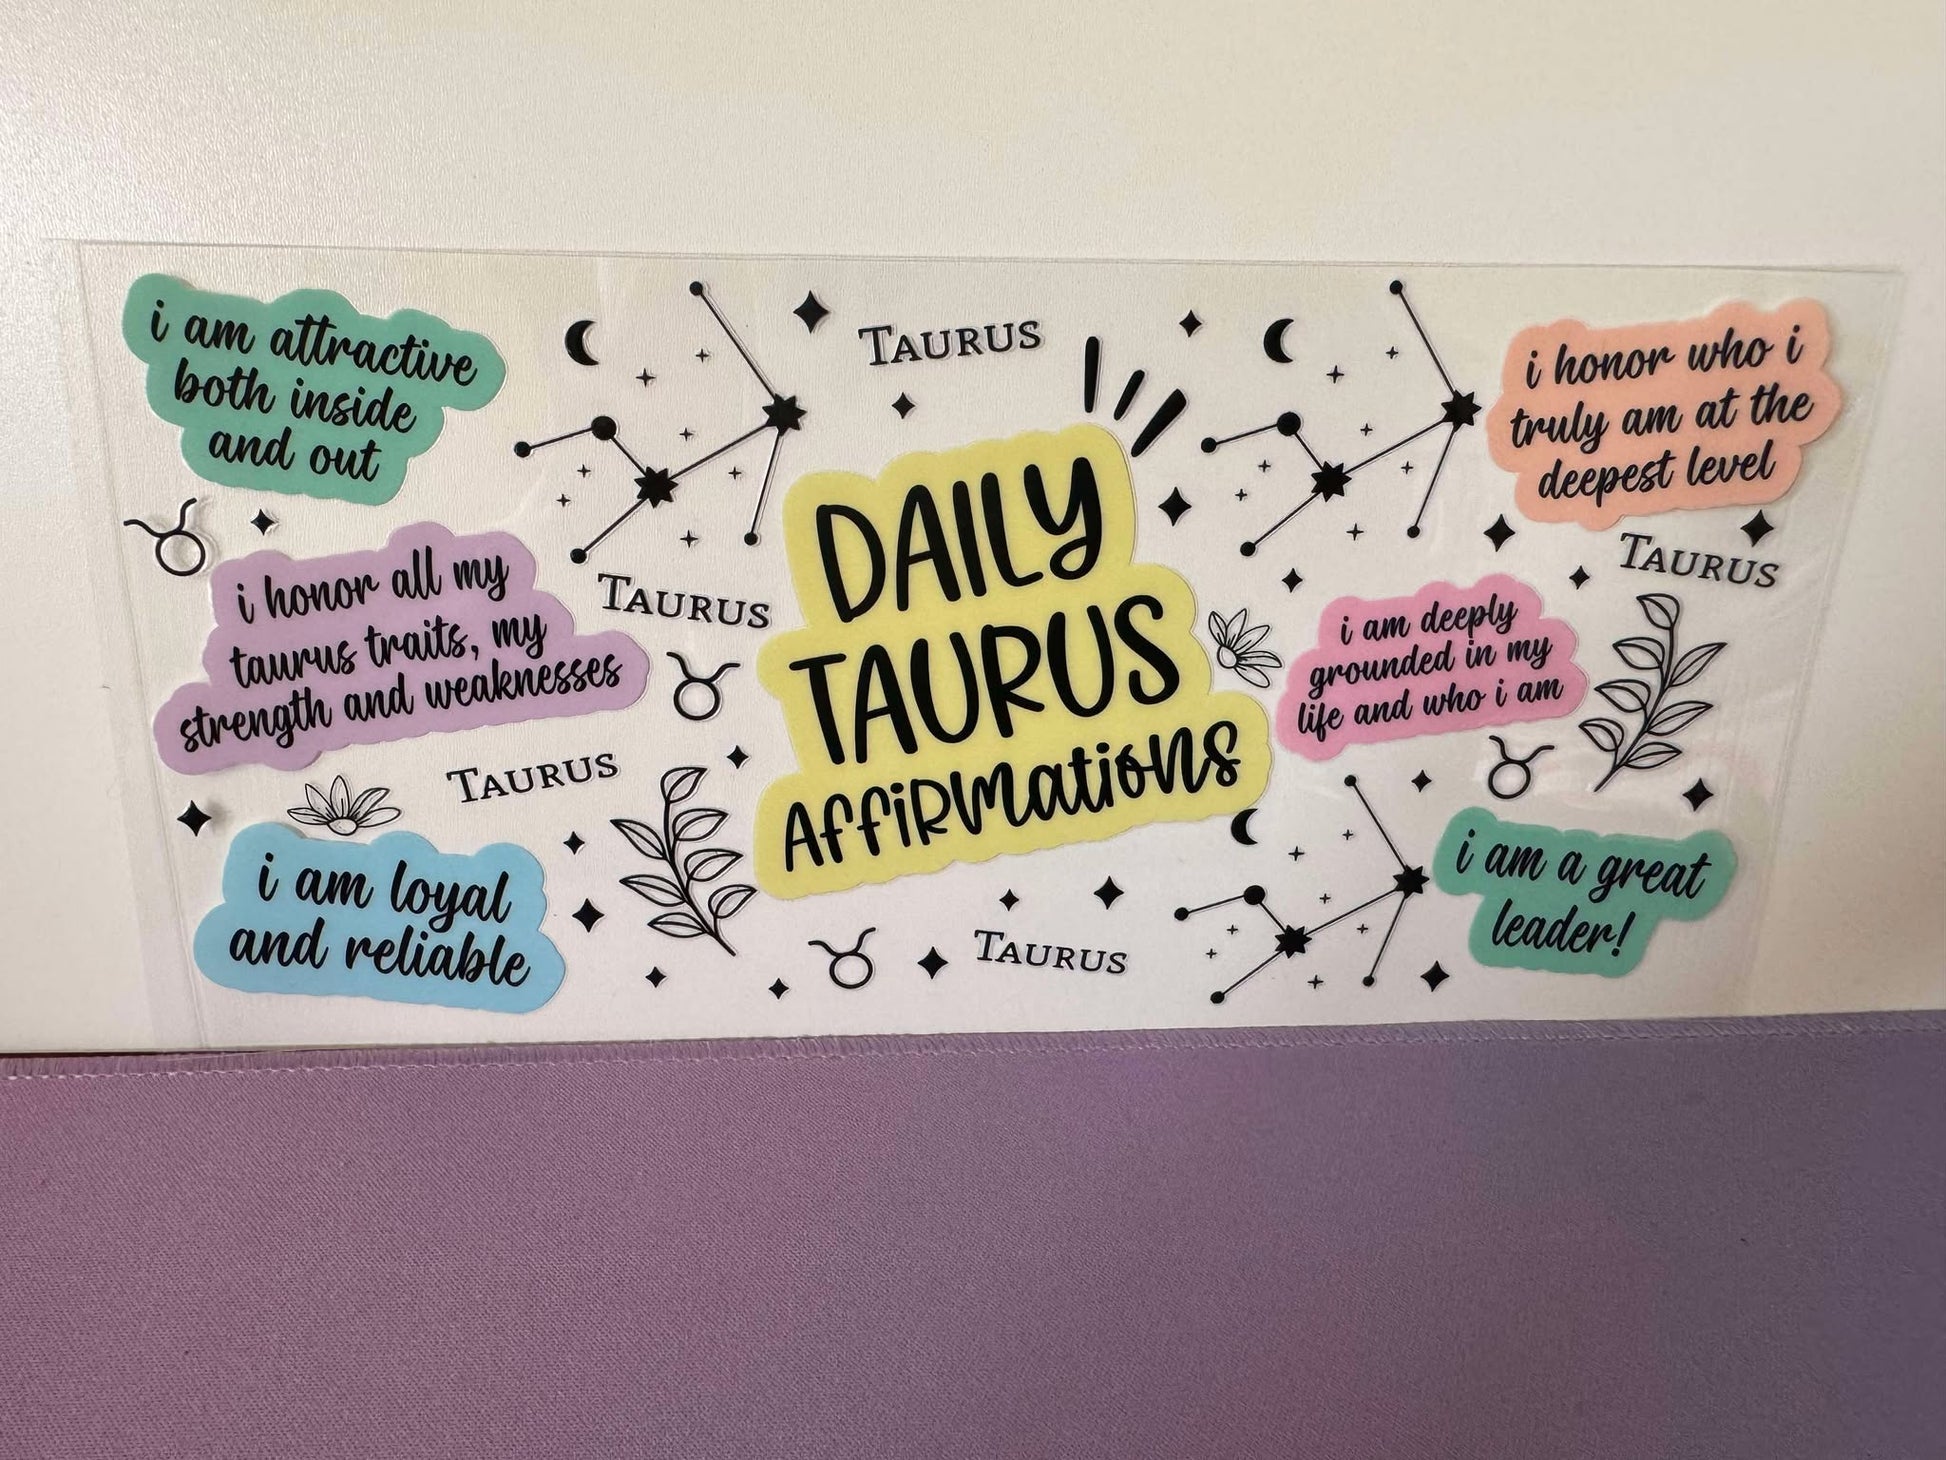 i am attractive
both inside
and out
TAURUS
i honor who i
truly am at the
deepest level
i honor all my
taurus traits, my
strength and weaknesses
TAURUS
DAILY
TAURUS
AFFIRMATIONS
TAURUS
i am deeply
grounded in my
life and who i am
TAURUS
i am loyal
and reliable
TAURUS
i am a great
leader!